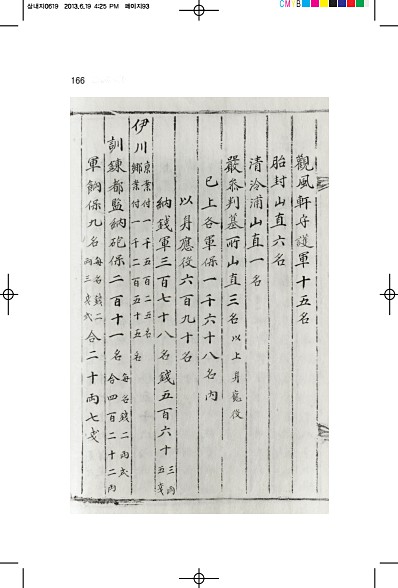 삼내지0619 2013.6.19 4:25 PM 페이지93
CMYB
166
觀風軒守護軍十五名
胎封山直六名
清泠浦山直一名
嚴參判墓所山直三名 以上身應役
已上各軍保一千六十八名內
以身應役六百九十名
納錢軍三百七十八名 錢五百六十三兩五戔
伊川 京案付一千五百二五名
鄕案付一千二百五十五名
訓鍊都監納砲保二百十一名 每名錢二兩式 合四百二十二兩
軍餉保九名 每名錢二兩三戔式 合二十兩七戔